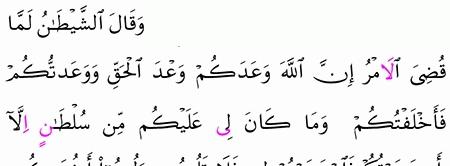 وَقَالَ ٱلشَّيْطَـٰنُ لَمَّا
قُضِىَ ٱلَامْرُ إِنَّ ٱللَّهَ وَعَدَكُمْ وَعْدَ ٱلْحَقِّ وَوَعَدتُّكُمْ
فَأَخْلَفْتُكُمْ وَمَا كَانَ لِى عَلَيْكُم مِّن سُلْطَـٰنٍ اِلَّآ